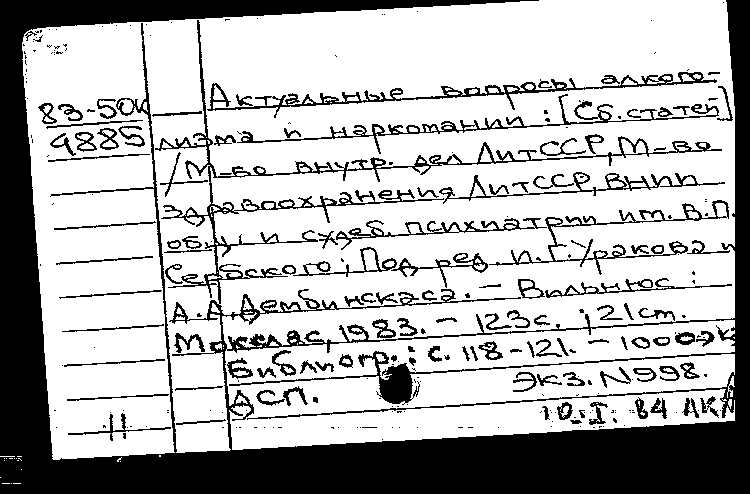 Актуальные вопросы алкого-
83-50К
4885 лизма и наркомании : [Сб. статей]
/М-во внутр. дел ЛитССР, М-во
здравоохранения ЛитССР, ВНИИ
общ. и судеб. психиатрии им. В.П.
Сербского; Под ред. И.Г. Уракова и
А.А. Дембинскаса. - Вильнюс :
Мокслас, 1983. - 123с. ; 21 см.
Библиогр.: с. 118-121. - 1000 эк
ДСП. Экз. N998.
11 10.I. 84 АКА